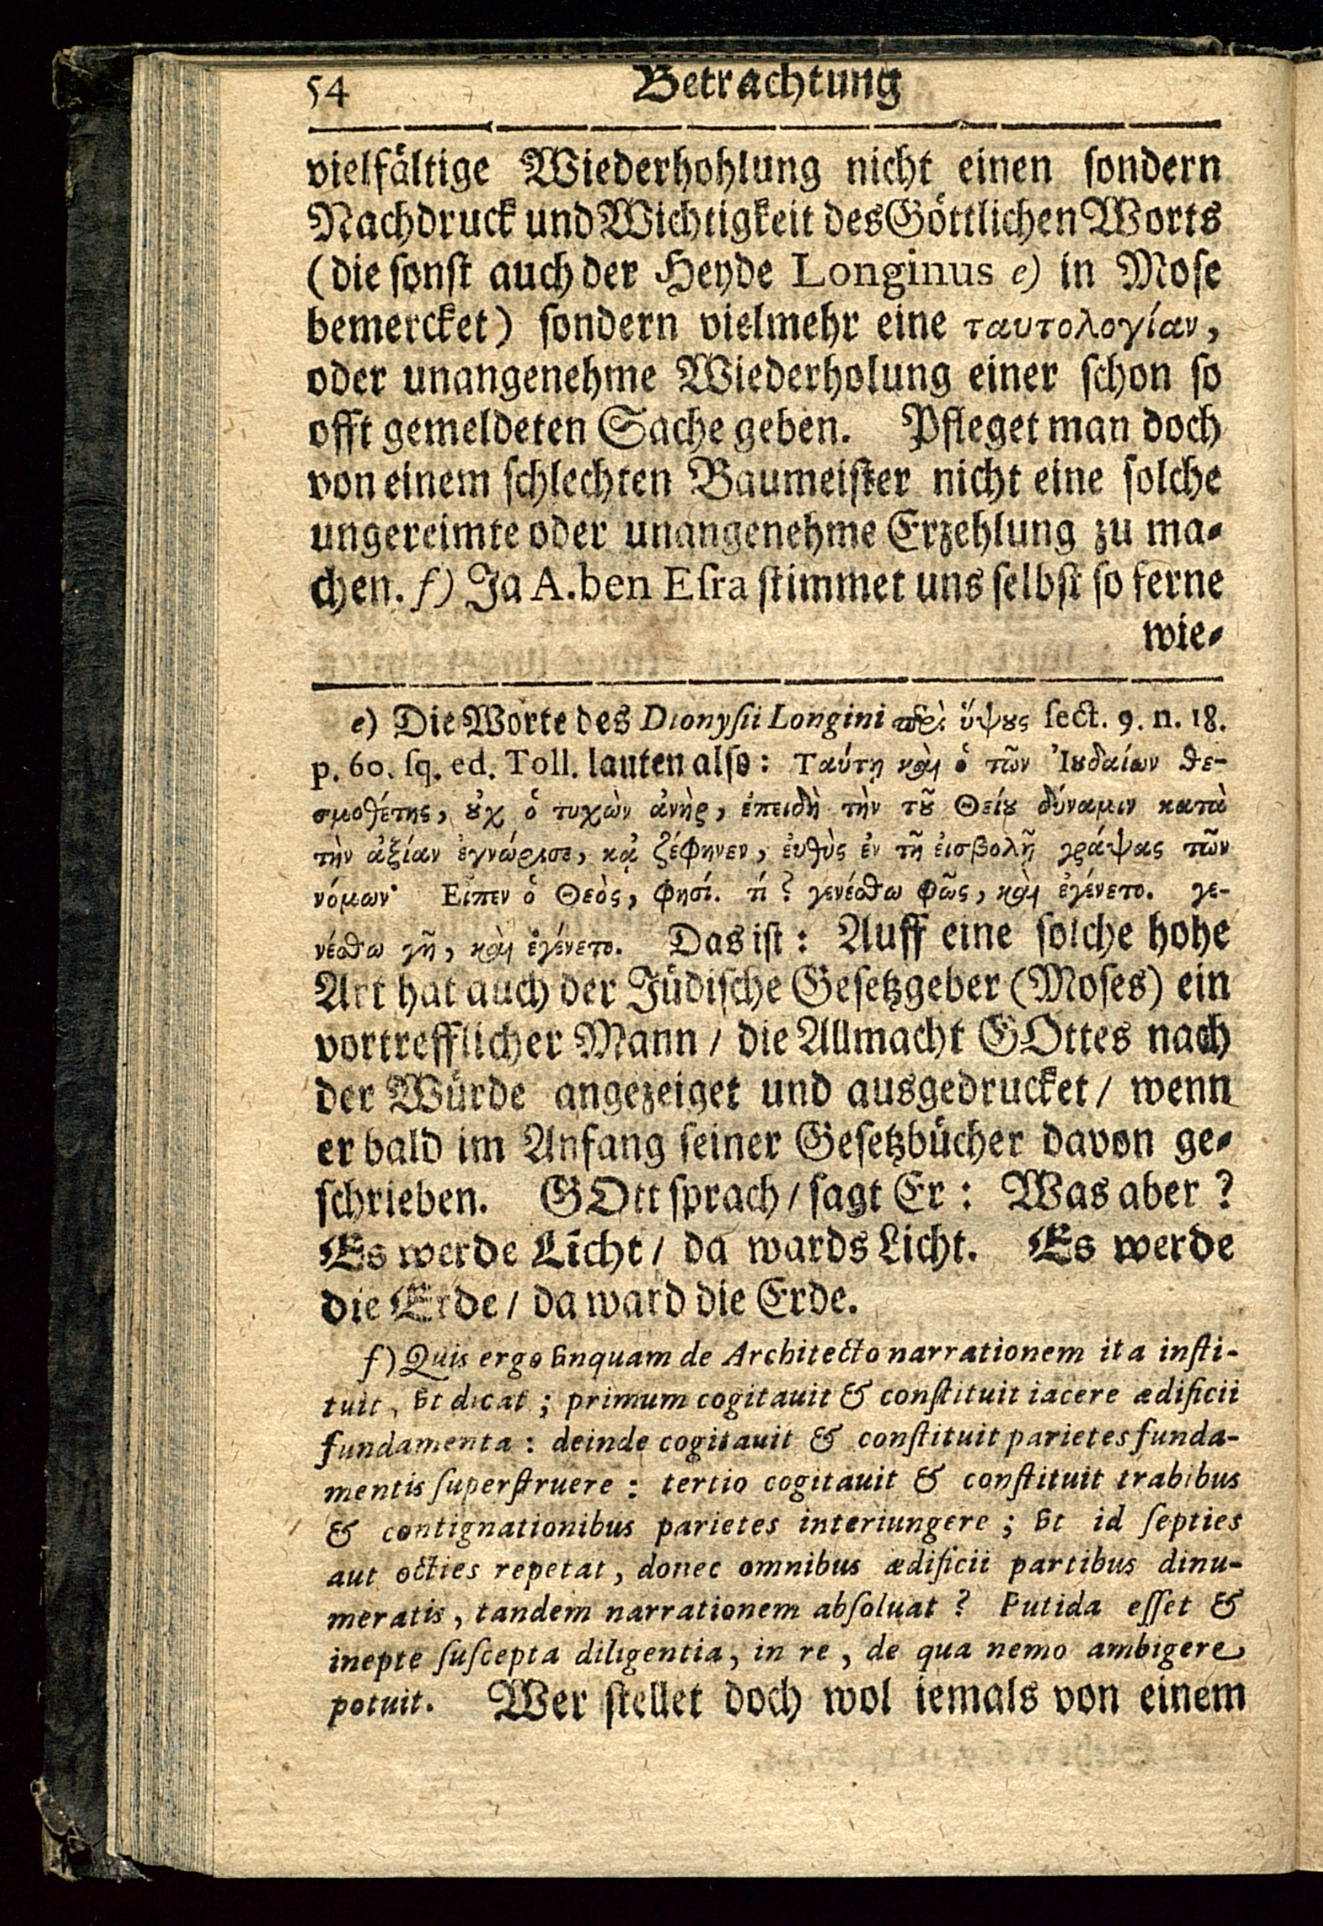 54 Betrachtung
vielfältige Wiederhohlung nicht einen sondern
Nachdruck und Wichtigkeit des Göttlichen Worts
(die sonst auch der Heyde Longinus e) in Mose
bemercket) sondern vielmehr eine ταυτολογίαν,
oder unangenehme Wiederholung einer schon so
offt gemeldeten Sache geben. Pfleget man doch
von einem schlechten Baumeister nicht eine solche
ungereimte oder unangenehme Erzehlung zu ma-
chen. f) Ja A. ben Esra stimmet uns selbst so ferne
wie-
e) Die Worte des Dionysii Longini περὶ ὕψους sect. 9. n. 18.
p. 60. sq. ed. Toll. lauten also: Ταύτῃ καὶ ὁ τῶν Ἰουδαίων θε-
σμοθέτης, οὐχ ὁ τυχὼν ἀνὴρ, ἐπειδὴ τὴν τοῦ Θείου δύναμιν κατὰ
τὴν ἀξίαν ἐγνώρισε, κᾀξέφηνεν, ἐυθὺς ἐν τῇ ἐισβολῇ γράψας τῶν
νόμων· Εἶπεν ὁ Θεὸς, φησί. τί? γενέσθω φῶς, καὶ ἐγένετο. γε-
νέσθω γῆ, καὶ ἐγένετο. Das ist: Auff eine solche hohe
Art hat auch der Jüdische Gesetzgeber (Moses) ein
vortrefflicher Mann / die Allmacht GOttes nach
der Würde angezeiget und ausgedrucket / wenn
er bald im Anfang seiner Gesetzbücher davon ge-
schrieben. GOtt sprach / sagt Er: Was aber?
Es werde Licht / da wards Licht. Es werde
die Erde / da ward die Erde.
f) Quis ergo vnquam de Architecto narrationem ita insti-
tuit, vt dicat; primum cogitauit & constituit iacere ædificii
fundamenta: deinde cogitauit & constituit parietes funda-
mentis superstruere: tertio cogitauit & constituit trabibus
& contignationibus parietes interiungere; vt id septies
aut octies repetat, donec omnibus ædificii partibus dinu-
meratis, tandem narrationem absoluat? Putida esset &
inepte suscepta diligentia, in re, de qua nemo ambigere
potuit. Wer stellet doch wol iemals von einem